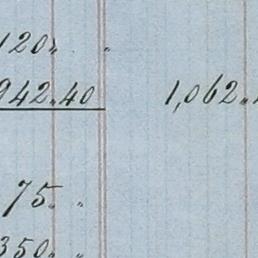 120 "
942.40 1,062.
75. "
350. "